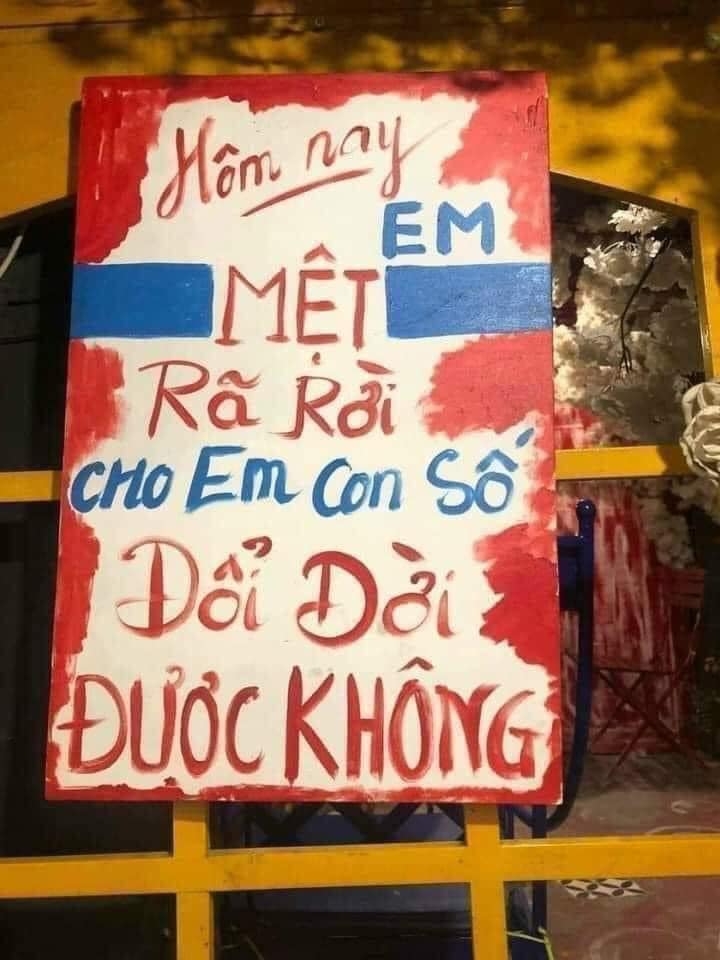 Hôm nay
EM
MỆT
Rã Rời
CHO Em Con Số
Đổi Đời
ĐƯƠC KHÔNG